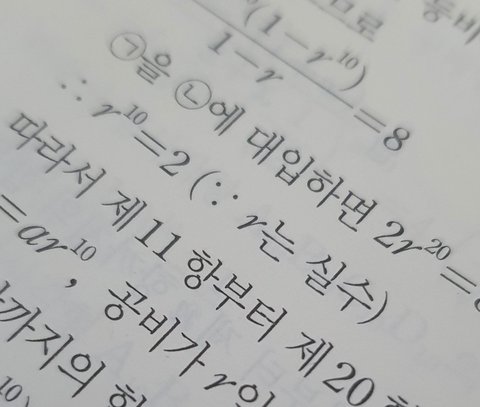 (1-r¹⁰)
1-r =8
㉠을 ㉡에 대입하면 2r²⁰=
∴ r¹⁰=2 (∵ r는 실수)
따라서 제11항부터 제20
=ar¹⁰, 공비가 r인
까지의